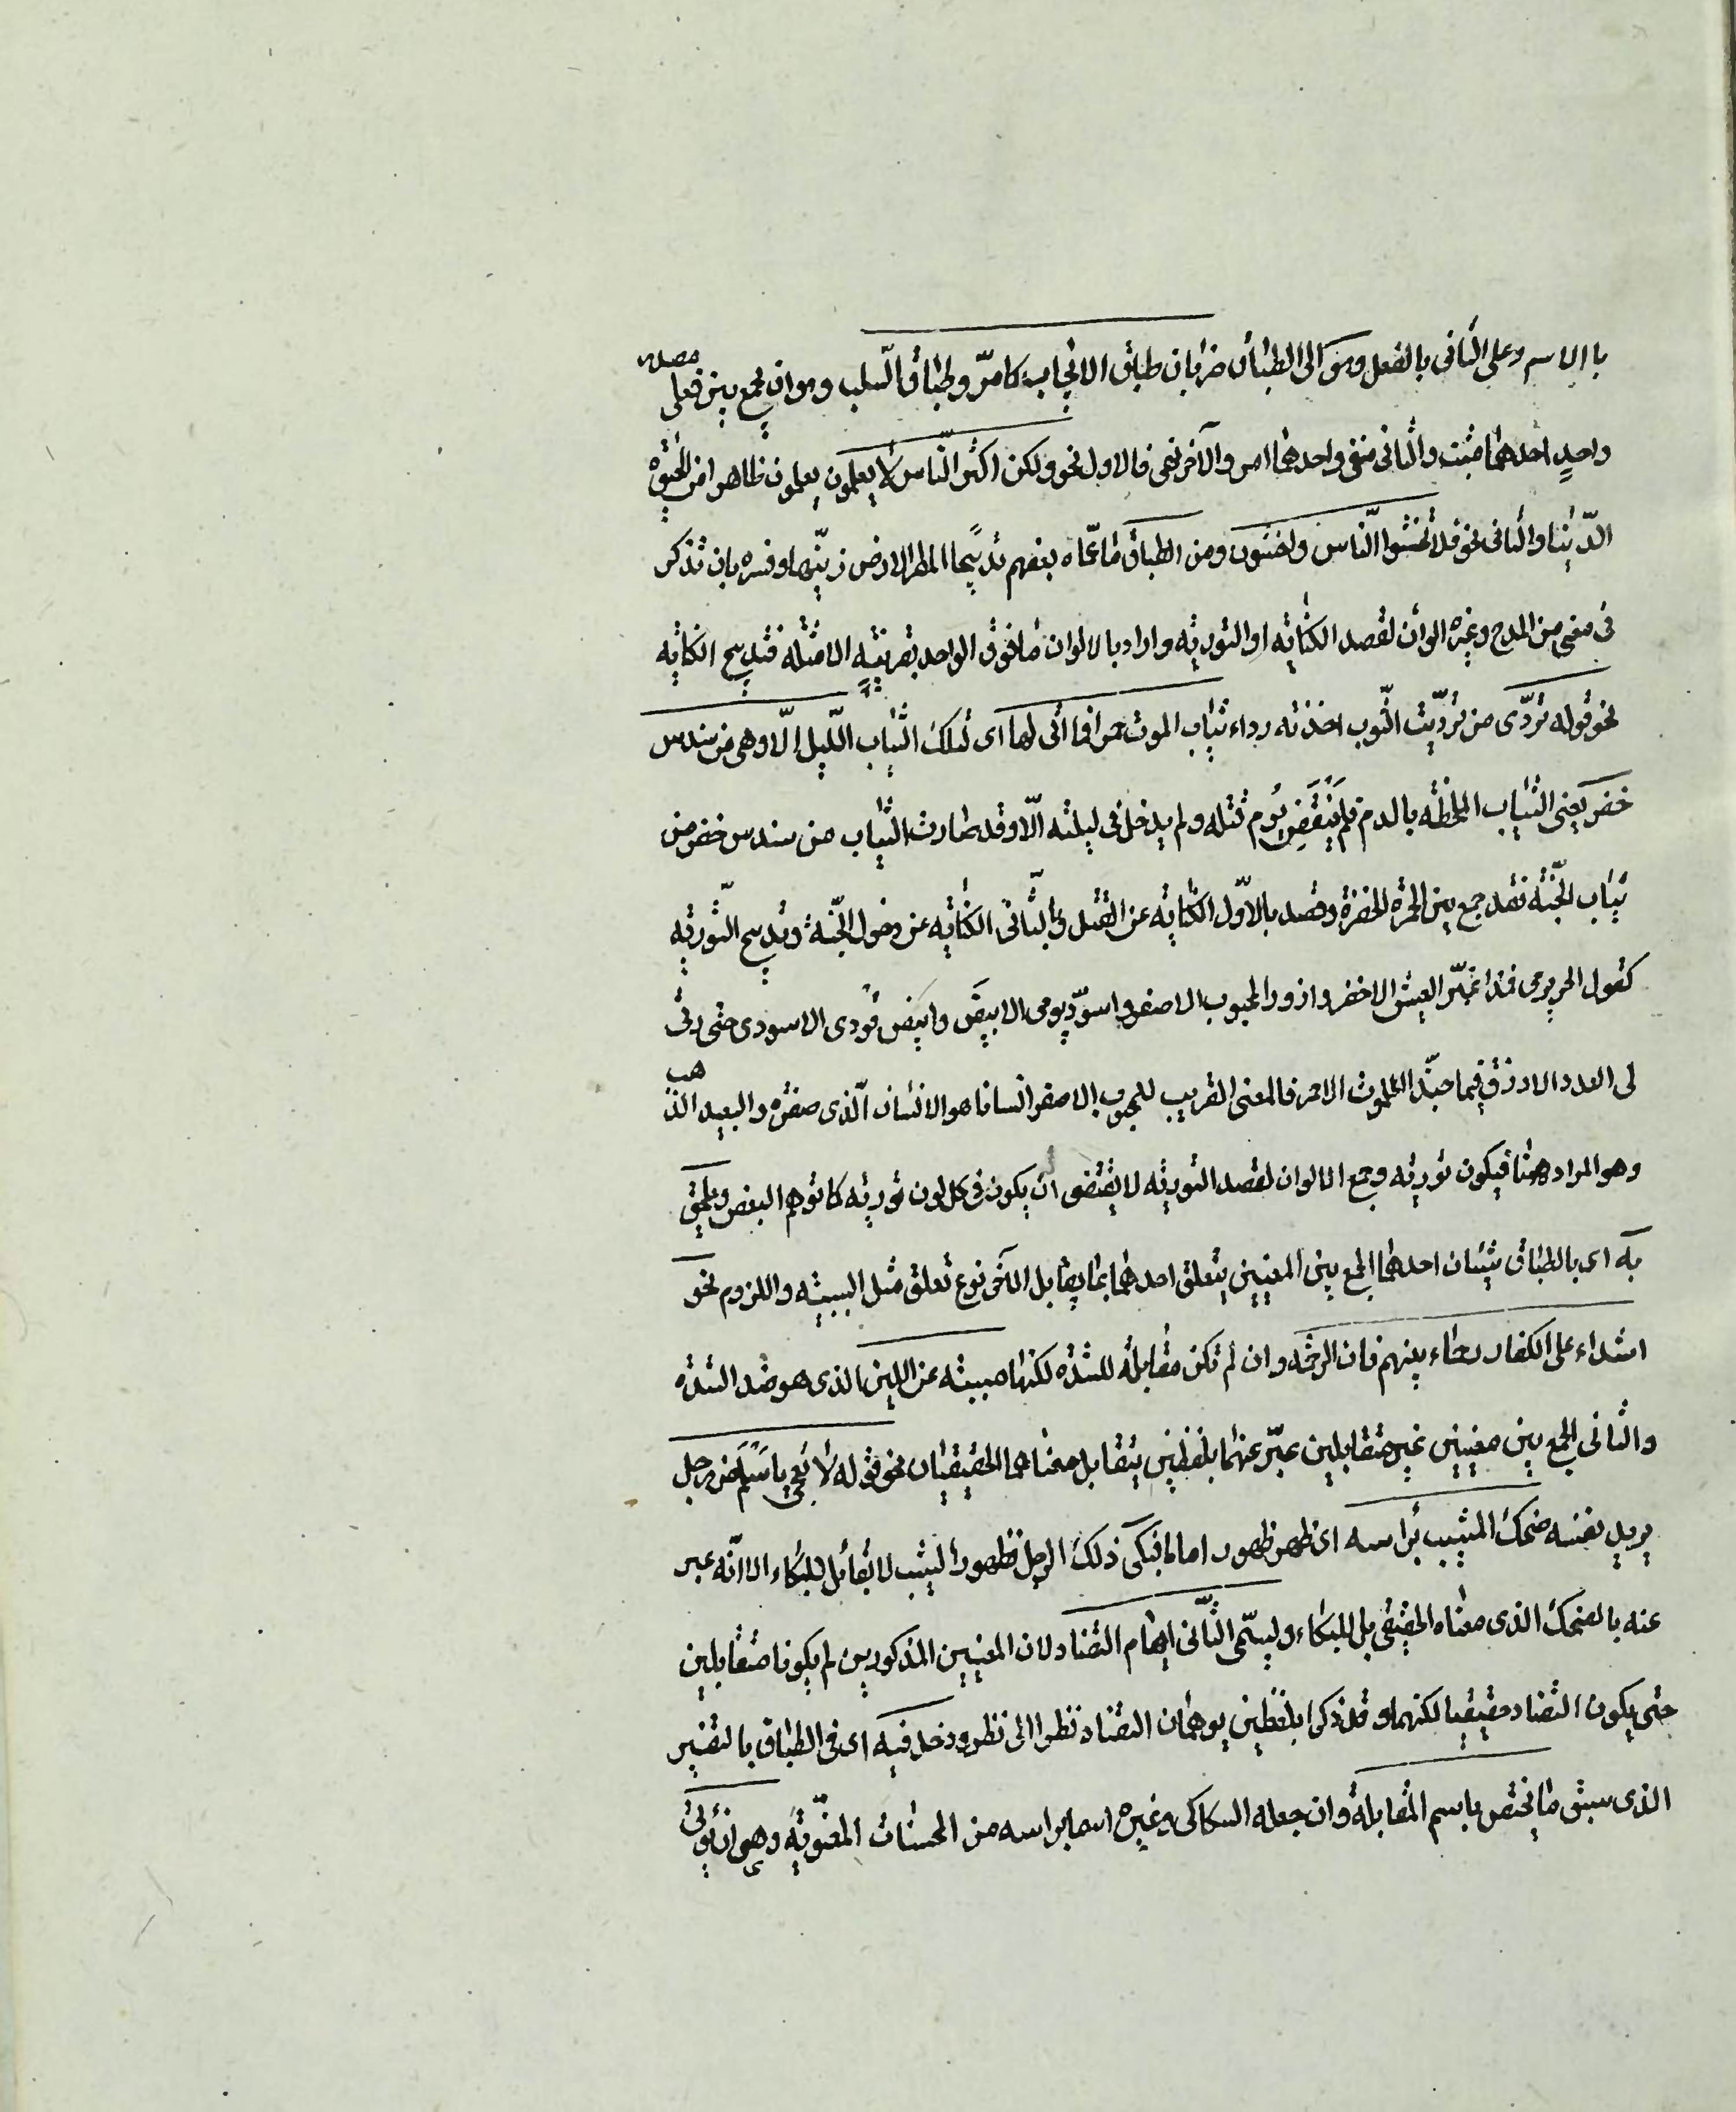 باالاسم وعلى الثانى بالفعل وهو اى الطباق ضربان طباق الايجاب كما مرّ وطباق السلب وهو ان يجمع بين فعلى مصدر
واحدٍ احدهما مثبت والثانى منفى واحدهما امر والآخر نهى فالاول نحو ولكن اكثر النّاس لا يعلمون يعلمون ظاهرا من الحيوة
الدّنيا والثانى نحو فلا تخشوا النّاس واخشون ومن الطباق ما سمّاه بعضهم تدبيجا المطر الارض زيّنها وفسره بان تذكر
فى معنى من المدح وغيره الوان لقصد الكناية او التورية واراد بالالوان ما فوق الواحد بقرينة الامثلة فتدبيج الكناية
نحو قوله تردّى من تردّيت الثّوب اخذته رداء ثياب الموت حمرا فما اتى لها اى لتلك الثّياب اللّيل الّا وهى من سندس
خضر يعنى الثياب الملطخة بالدم فلم يَنقَضِ يوم قتله ولم يدخل فى ليلته الّا وقد صارت الثّياب من سندس خضر من
ثياب الجنّة فقد جمع بين الحمرة الخضرة وقصد بالاوّل الكناية عن القتل وبالثّانى الكناية عن دخول الجنّة وتدبيج التّورية
كقول الحريرى فمذ اغبرّ العيش الاخضر وازور المحبوب الاصفر واسودّ يومى الابيض وابيض فودى الاسودى حتى رثى
لى العدو الازرق فيما حبّذا الموت الاحمر فالمعنى القريب للمحبوب الاصفر انسانا هو الانسان الّذى صفره والبعيد الذهب
وهو المراد ههنا فيكون تورية وجمع الالوان لقصد التورية لا يقتضى ان يكون فى كل لون تورية كما توهم البعض ويلحق
به اى بالطباق شيئان احدهما الجمع بين المعنيين يتعلق احدهما بما يقابل الآخر نوع تعلق مثل السببية واللزوم نحو
اشداء على الكفار رحماء بينهم فان الرحمة وان لم تكن مقابلة للشدة لكنها مسببة عن اللين الذى هو ضد الشدة
والثانى الجمع بين معنيين غير متقابلين عبّر عنهما بلفظين يتقابل معناهما الحقيقيان نحو قوله لا تعجبى يا سَلْمَ من رجل
يريد نفسه ضحك المشيب برأسه اى ظهر ظهورا تاما فبكى ذلك الرجل فظهور الشيب لا يقابل البكاء الا انّه عبر
عنه بالضحك الذى معناه الحقيقى بل البكاء ويسمّى الثّانى ايهام التضاد لان المعنيين المذكورين لم يكونا متقابلين
حتى يكون التضاد حقيقيا لكنهما وقد ذكرا بلفظين يوهمان التضاد نظرا الى نظر ودخل فيه اى فى الطباق بالتفسير
الذى سبق ما يختص باسم المقابلة وان جعله السكاكى وغيره اسما براسه من المحسنات المعنويّة وهى ان يؤتى